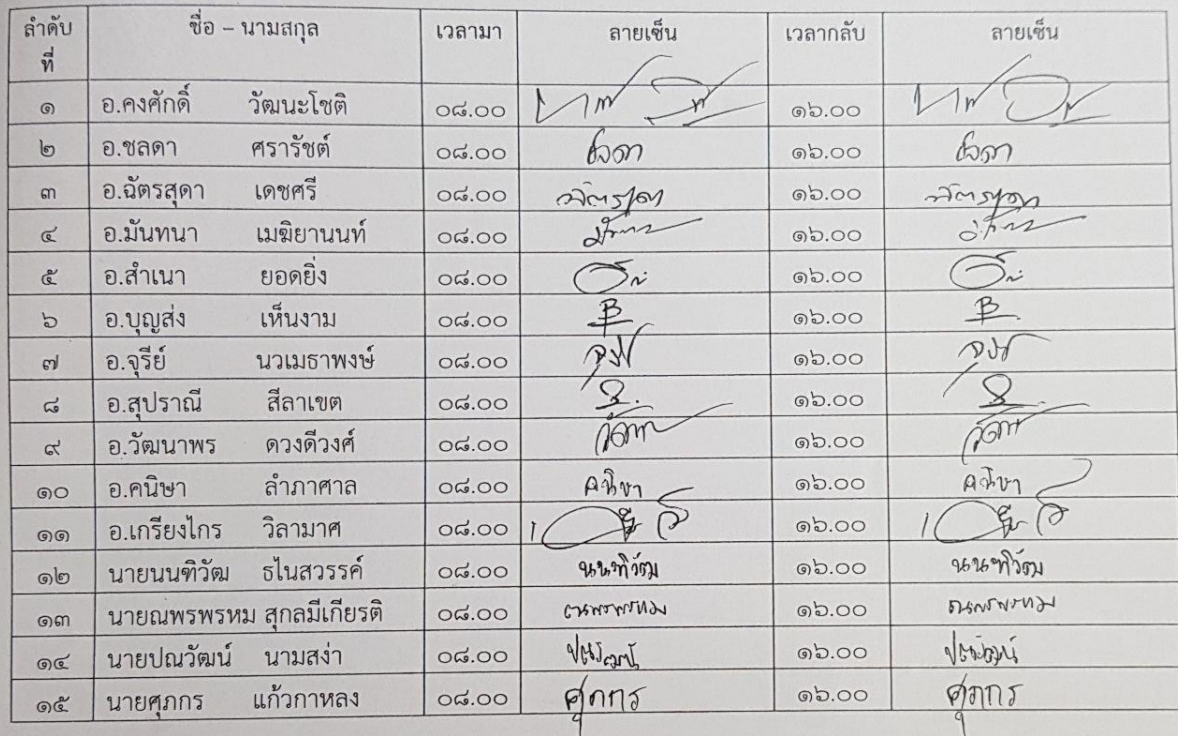 ลำดับที่ ชื่อ – นามสกุล เวลามา ลายเซ็น เวลากลับ ลายเซ็น
๑ อ.คงศักดิ์ วัฒนะโชติ ๐๘.๐๐ ๑๖.๐๐
๒ อ.ชลดา ศรารัชต์ ๐๘.๐๐ ชลดา ๑๖.๐๐ ชลดา
๓ อ.ฉัตรสุดา เดชศรี ๐๘.๐๐ ฉัตรสุดา ๑๖.๐๐ ฉัตรสุดา
๔ อ.มันทนา เมฆิยานนท์ ๐๘.๐๐ ๑๖.๐๐
๕ อ.สำเนา ยอดยิ่ง ๐๘.๐๐ ๑๖.๐๐
๖ อ.บุญส่ง เห็นงาม ๐๘.๐๐ B ๑๖.๐๐ B
๗ อ.จุรีย์ นวเมธาพงษ์ ๐๘.๐๐ ๑๖.๐๐
๘ อ.สุปราณี สีลาเขต ๐๘.๐๐ ๑๖.๐๐
๙ อ.วัฒนาพร ดวงดีวงศ์ ๐๘.๐๐ ๑๖.๐๐
๑๐ อ.คนิษา ลำภาศาล ๐๘.๐๐ คนิษา ๑๖.๐๐ คนิษา
๑๑ อ.เกรียงไกร วิลามาศ ๐๘.๐๐ ๑๖.๐๐
๑๒ นายนนฑิวัฒ ธไนสวรรค์ ๐๘.๐๐ นนฑิวัฒ ๑๖.๐๐ นนฑิวัฒ
๑๓ นายณพรพรหม สุกลมีเกียรติ ๐๘.๐๐ ณพรพรหม ๑๖.๐๐ ณพรพรหม
๑๔ นายปณวัฒน์ นามสง่า ๐๘.๐๐ ปณวัฒน์ ๑๖.๐๐ ปณวัฒน์
๑๕ นายศุภกร แก้วกาหลง ๐๘.๐๐ ศุภกร ๑๖.๐๐ ศุภกร